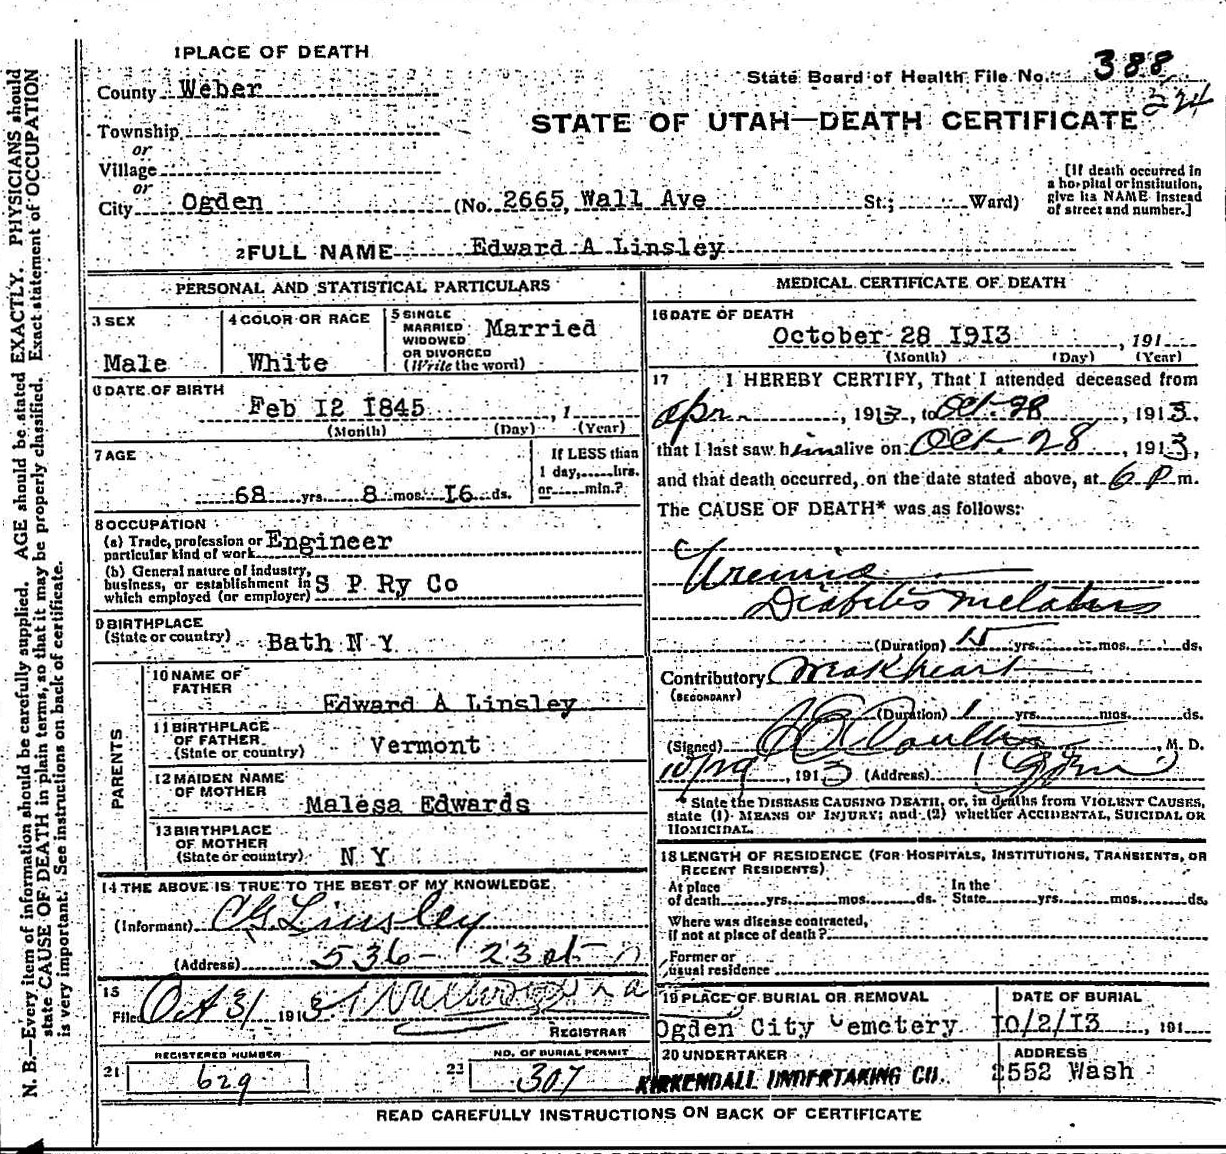 1 PLACE OF DEATH
State Board of Health File No. 388
224
County Weber
STATE OF UTAH—DEATH CERTIFICATE
Township
or
Village
or
City Ogden (No. 2665, Wall Ave St.; Ward)
[If death occurred in
a hospital or institution,
give its NAME instead
of street and number.]
2 FULL NAME Edward A Linsley
PERSONAL AND STATISTICAL PARTICULARS
3 SEX
Male
4 COLOR OR RACE
White
5 SINGLE
MARRIED
WIDOWED
OR DIVORCED
(Write the word)
Married
6 DATE OF BIRTH
Feb 12 1845, 1
(Month) (Day) (Year)
7 AGE
68 yrs. 8 mos. 16 ds.
If LESS than
1 day, hrs.
or min.?
8 OCCUPATION
(a) Trade, profession or
particular kind of work Engineer
(b) General nature of industry,
business, or establishment in
which employed (or employer) S P Ry Co
9 BIRTHPLACE
(State or country) Bath N Y
PARENTS
10 NAME OF
FATHER
Edward A Linsley
11 BIRTHPLACE
OF FATHER
(State or country) Vermont
12 MAIDEN NAME
OF MOTHER
Malesa Edwards
13 BIRTHPLACE
OF MOTHER
(State or country) N Y
14 THE ABOVE IS TRUE TO THE BEST OF MY KNOWLEDGE
(Informant) C G Linsley
(Address) 536 - 23 st
15
Filed Oct 31 1913
REGISTRAR
21 REGISTERED NUMBER
629
23 NO. OF BURIAL PERMIT
307
MEDICAL CERTIFICATE OF DEATH
16 DATE OF DEATH
October 28 1913, 191
(Month) (Day) (Year)
17 I HEREBY CERTIFY, That I attended deceased from
Apr., 1913, to Oct. 28, 1913,
that I last saw him alive on Oct. 28, 1913,
and that death occurred, on the date stated above, at 6 P m.
The CAUSE OF DEATH* was as follows:
Uremia
Diabetis melatus
(Duration) 15 yrs. mos. ds.
Contributory weak heart
(SECONDARY)
(Duration) 1 yrs. mos. ds.
(Signed) , M. D.
10/29, 1913 (Address)
* State the DISEASE CAUSING DEATH, or, in deaths from VIOLENT CAUSES,
state (1) MEANS OF INJURY; and (2) whether ACCIDENTAL, SUICIDAL OR
HOMICIDAL.
18 LENGTH OF RESIDENCE (FOR HOSPITALS, INSTITUTIONS, TRANSIENTS, OR
RECENT RESIDENTS).
At place
of death yrs. mos. ds.
In the
State yrs. mos. ds.
Where was disease contracted,
if not at place of death?
Former or
usual residence
19 PLACE OF BURIAL OR REMOVAL
Ogden City Cemetery
DATE OF BURIAL
10/2/13, 191
20 UNDERTAKER
KIRKENDALL UNDERTAKING CO.
ADDRESS
2552 Wash
READ CAREFULLY INSTRUCTIONS ON BACK OF CERTIFICATE
N. B.—Every item of information should be carefully supplied. AGE should be stated EXACTLY. PHYSICIANS should
state CAUSE OF DEATH in plain terms, so that it may be properly classified. Exact statement of OCCUPATION
is very important. See instructions on back of certificate.